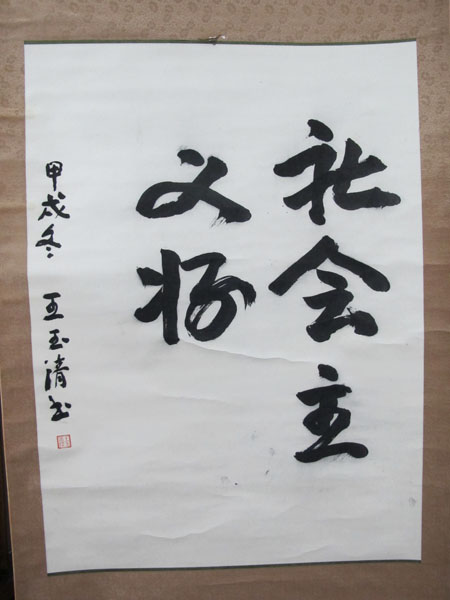 社会主
义好
甲戌冬 王玉清书